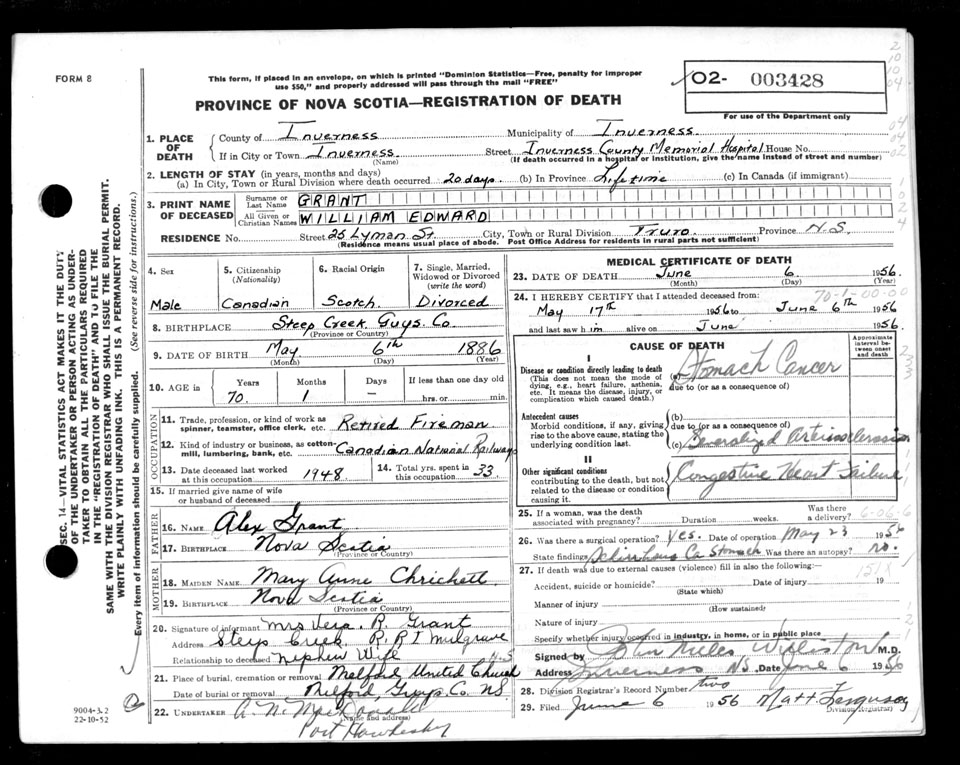 FORM 8
This form, if placed in an envelope, on which is printed "Dominion Statistics—Free, penalty for improper
use $50," and properly addressed will pass through the mail "FREE"
PROVINCE OF NOVA SCOTIA—REGISTRATION OF DEATH
02- 003428
For use of the Department only
1. PLACE OF DEATH
County of Inverness Municipality of Inverness
If in City or Town Inverness (Name) Street Inverness County Memorial Hospital House No.
(If death occurred in a hospital or institution, give the name instead of street and number)
2. LENGTH OF STAY (in years, months and days)
(a) In City, Town or Rural Division where death occurred 20 days. (b) In Province Lifetime (c) In Canada (if immigrant)
3. PRINT NAME OF DECEASED
Surname or Last Name GRANT
All Given or Christian Names WILLIAM EDWARD
RESIDENCE No. Street 25 Lyman St. City, Town or Rural Division Truro Province N.S.
(Residence means usual place of abode. Post Office Address for residents in rural parts not sufficient)
4. Sex
Male
5. Citizenship (Nationality)
Canadian
6. Racial Origin
Scotch
7. Single, Married, Widowed or Divorced (write the word)
Divorced
8. BIRTHPLACE Steep Creek Guys. Co
(Province or Country)
9. DATE OF BIRTH May 6th 1886
(Month) (Day) (Year)
10. AGE in
Years Months Days If less than one day old
70 1 — hrs. or min.
OCCUPATION
11. Trade, profession, or kind of work as spinner, teamster, office clerk, etc. Retired Fireman
12. Kind of industry or business, as cotton-mill, lumbering, bank, etc. Canadian National Railways
13. Date deceased last worked at this occupation 1948
14. Total yrs. spent in this occupation 33
15. If married give name of wife or husband of deceased
FATHER
16. NAME Alex Grant
17. BIRTHPLACE Nova Scotia
(Province or Country)
MOTHER
18. MAIDEN NAME Mary Anne Chrichett
19. BIRTHPLACE Nova Scotia
(Province or Country)
20. Signature of informant Mrs Vera. R. Grant
Address Steep Creek R.R 1 Mulgrave
N.S
Relationship to deceased Nephew Wife
21. Place of burial, cremation or removal Melford United Church
Date of burial or removal Milford Guys. Co. NS
22. UNDERTAKER A. N. MacDonald
(Name and address)
Port Hawkesbury
MEDICAL CERTIFICATE OF DEATH
23. DATE OF DEATH June 6. 1956.
(Month) (Day) (Year)
24. I HEREBY CERTIFY that I attended deceased from: 70-1-00-00
May 17th 1956 to June 6th 1956
and last saw him alive on June 1956.
CAUSE OF DEATH
Approximate interval between onset and death
I
Disease or condition directly leading to death
(This does not mean the mode of dying, e.g., heart failure, asthenia, etc. It means the disease, injury, or complication which caused death.)
(a) Stomach Cancer
due to (or as a consequence of)
Antecedent causes
Morbid conditions, if any, giving rise to the above cause, stating the underlying condition last.
(b)
due to (or as a consequence of)
(c) Generalized Arteriosclerosis
II
Other significant conditions
contributing to the death, but not related to the disease or condition causing it.
Congestive Heart Failure
25. If a woman, was the death associated with pregnancy? Duration weeks. Was there a delivery?
6-06-6
26. Was there a surgical operation? Yes. Date of operation May 23 1956
State findings Schirrhous Ca Stomach Was there an autopsy? no.
27. If death was due to external causes (violence) fill in also the following:—
151X
Accident, suicide or homicide? Date of injury 19
(State which)
Manner of injury
(How sustained)
Nature of injury
Specify whether injury occurred in industry, in home, or in public place
Signed by John Niles Williston M.D.
Address Inverness NS. Date June 6 1956
28. Division Registrar's Record Number two
29. Filed June 6 1956 Matt. Ferguson
(Division Registrar)
SEC. 14—VITAL STATISTICS ACT MAKES IT THE DUTY
OF THE UNDERTAKER OR PERSON ACTING AS UNDER-
TAKER TO OBTAIN ALL THE PARTICULARS REQUIRED
IN THE "REGISTRATION OF DEATH" AND TO FILE THE
SAME WITH THE DIVISION REGISTRAR WHO SHALL ISSUE THE BURIAL PERMIT.
WRITE PLAINLY WITH UNFADING INK. THIS IS A PERMANENT RECORD.
Every item of information should be carefully supplied. (See reverse side for instructions.)
9004-3.2
22-10-52